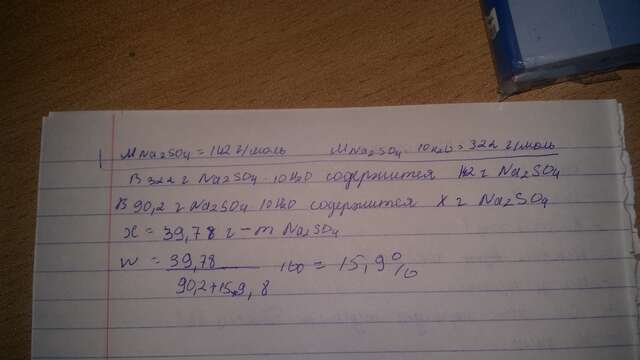 M Na2SO4 = 142 г/моль M Na2SO4 10H2O = 322 г/моль
В 322 г Na2SO4 10H2O содержится 142 г Na2SO4
В 90,2 г Na2SO4 10H2O содержится X г Na2SO4
x = 39,78 г - m Na2SO4
W = 39,78 100 = 15,9%
90,2+159,8